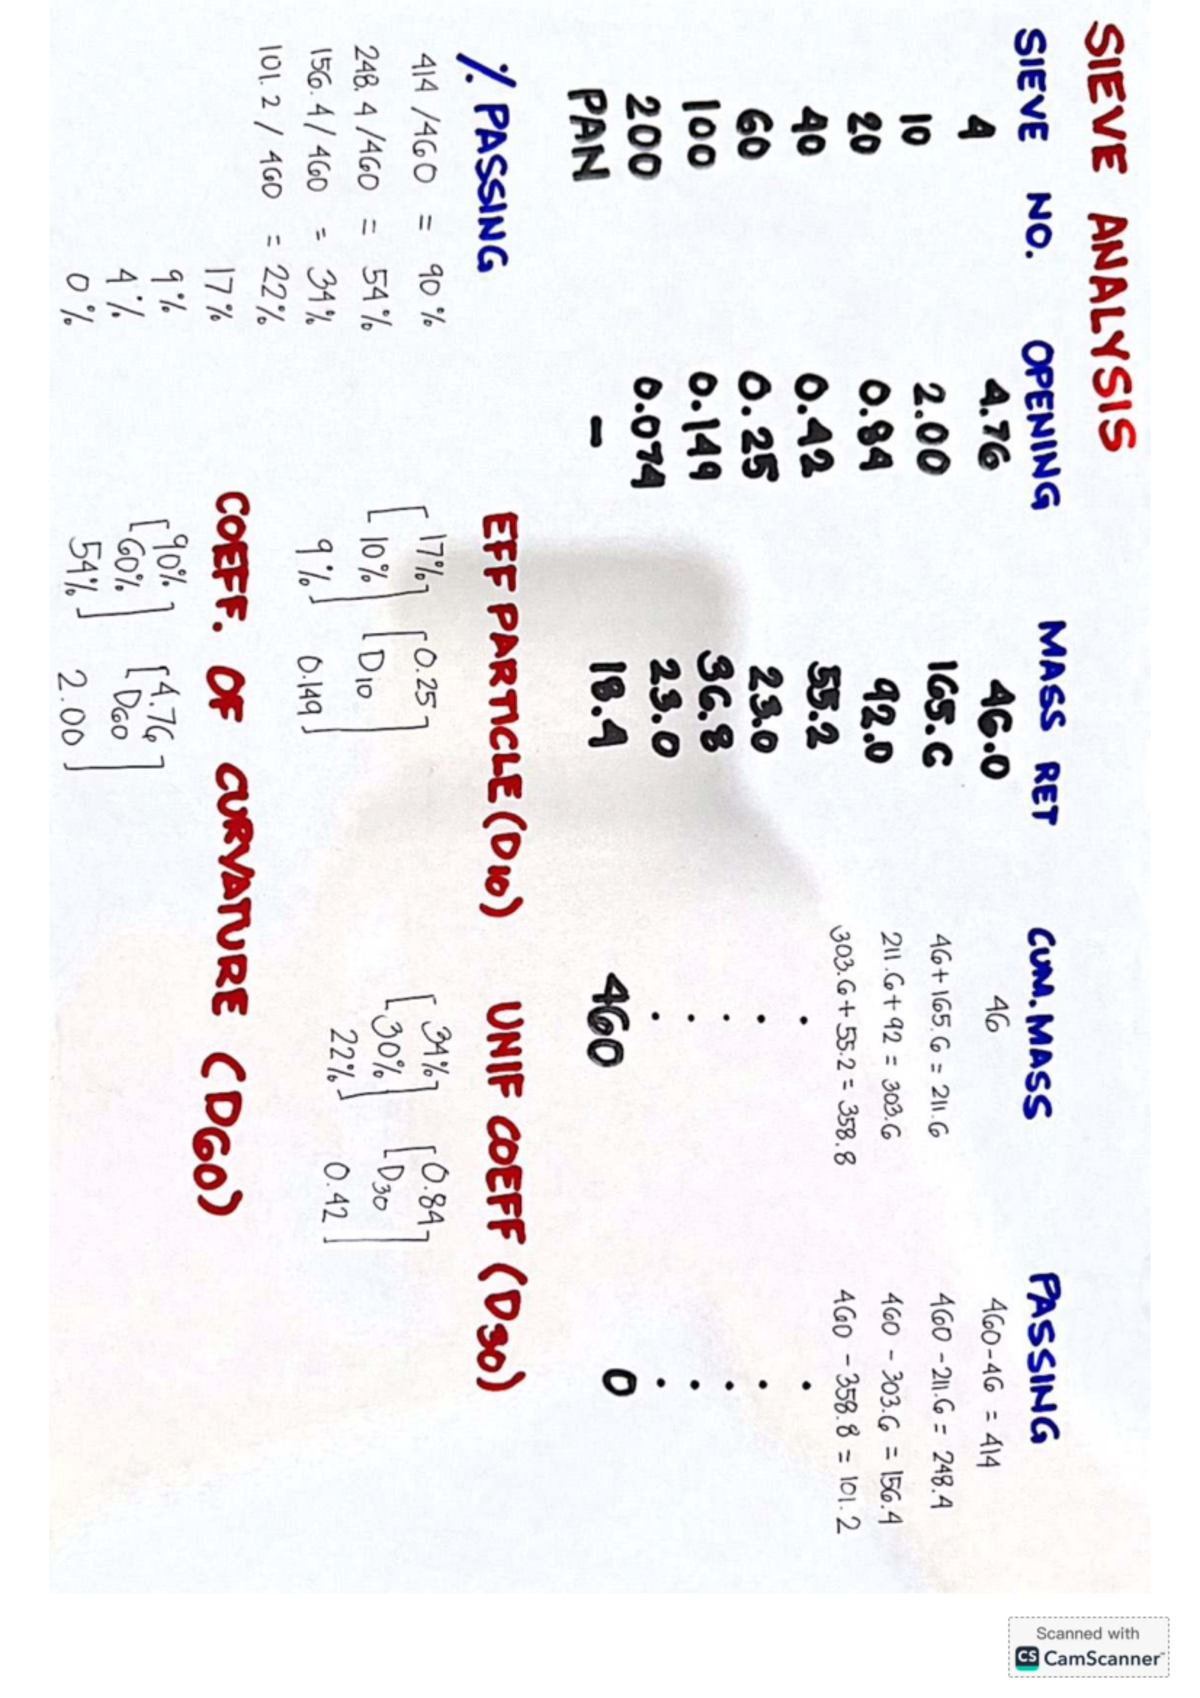 SIEVE ANALYSIS
SIEVE NO. OPENING MASS RET CUM. MASS PASSING
4 4.76 46.0 46 460-46 = 414
10 2.00 165.6 46+165.6 = 211.6 460-211.6 = 248.4
20 0.84 92.0 211.6+92 = 303.6 460 - 303.6 = 156.4
40 0.42 55.2 303.6+55.2 = 358.8 460 - 358.8 = 101.2
60 0.25 23.0 . .
100 0.149 36.8 . .
200 0.074 23.0 . .
PAN - 18.4 460 0
% PASSING
414 /460 = 90%
248.4 /460 = 54%
156.4/ 460 = 34%
101.2 / 460 = 22%
17%
9%
4%
0%
EFF PARTICLE (D10)
[17%] [0.25]
[10%] [D10]
[9%] [0.149]
UNIF COEFF (D30)
[34%] [0.84]
[30%] [D30]
[22%] [0.42]
COEFF. OF CURVATURE (D60)
[90%] [4.76]
[60%] [D60]
[54%] [2.00]
Scanned with
CS CamScanner